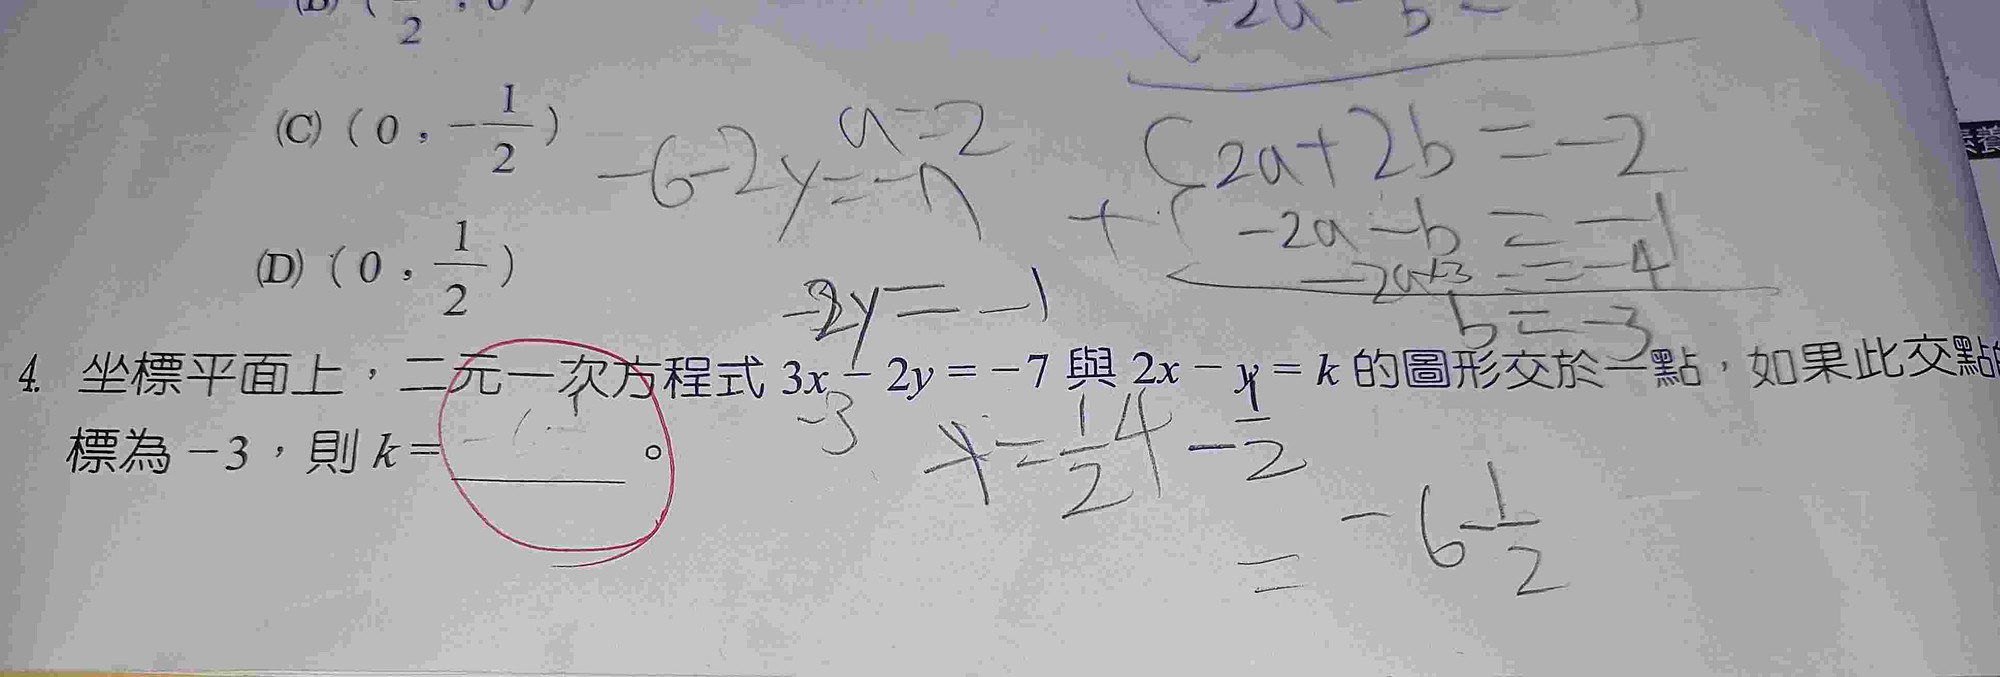 2
(C) ( 0 , -1/2 )
a=2
-6-2y=-7
2a+2b=-2
+
-2a-b=-1
-2a+3=-4
b=-3
(D) ( 0 , 1/2 )
-2y=-1
4. 坐標平面上，二元一次方程式 3x - 2y = -7 與 2x - y = k 的圖形交於一點，如果此交點
-3
y=1/2
標為 -3，則 k = 。
-6 1/2
=